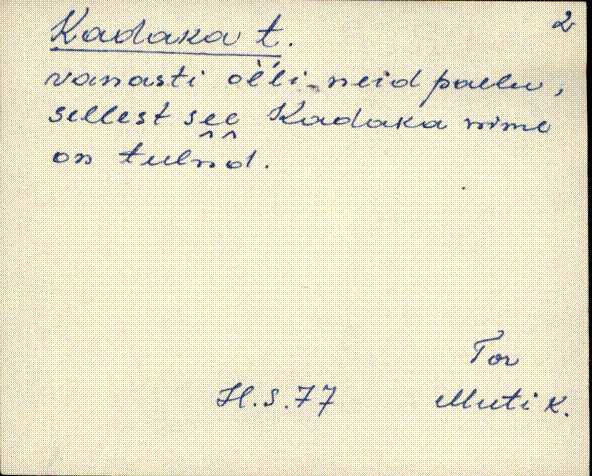 Kadaka t. 2
vanasti òlˋli neid paelu,
sellest see Kadaka nime
on tulnd.
Tor
H.S.77 Muti k.